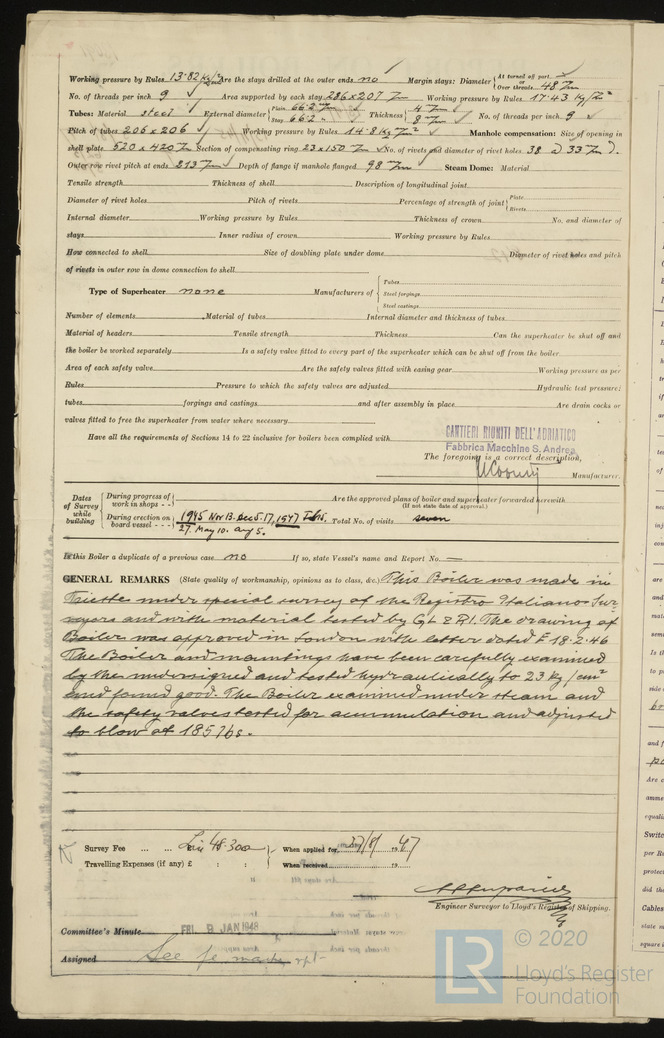 Working pressure by Rules 13.82 kg/cm² Are the stays drilled at the outer ends no Margin stays: Diameter { At turned off part, or Over threads 48 7m
No. of threads per inch 9 Area supported by each stay 236 x 207 7m Working pressure by Rules 17.43 Kg/
Tubes: Material steel External diameter { Plain 66.2 7m Stay 66.2 " Thickness { 4 7m 8 7m No. of threads per inch 9
Pitch of tubes 206 x 206 Working pressure by Rules 14.8 Kg Manhole compensation: Size of opening in
shell plate 520 x 420 7m Section of compensating ring 23 x 150 7m No. of rivets and diameter of rivet holes 38 a) 33 7m ).
Outer row rivet pitch at ends 213 7m Depth of flange if manhole flanged 98 7m Steam Dome: Material
Tensile strength Thickness of shell Description of longitudinal joint
Diameter of rivet holes Pitch of rivets Percentage of strength of joint { Plate Rivets
Internal diameter Working pressure by Rules Thickness of crown No. and diameter of
stays Inner radius of crown Working pressure by Rules
How connected to shell Size of doubling plate under dome Diameter of rivet holes and pitch
of rivets in outer row in dome connection to shell
Type of Superheater none Manufacturers of { Tubes Steel forgings Steel castings
Number of elements Material of tubes Internal diameter and thickness of tubes
Material of headers Tensile strength Thickness Can the superheater be shut off and
the boiler be worked separately Is a safety valve fitted to every part of the superheater which can be shut off from the boiler
Area of each safety valve Are the safety valves fitted with easing gear Working pressure as per
Rules Pressure to which the safety valves are adjusted Hydraulic test pressure:
tubes forgings and castings and after assembly in place Are drain cocks or
valves fitted to free the superheater from water where necessary
Have all the requirements of Sections 14 to 22 inclusive for boilers been complied with
CANTIERI RIUNITI DELL'ADRIATICO
Fabbrica Macchine S. Andrea
The foregoing is a correct description,
Manufacturer.
Dates of Survey while building { During progress of work in shops - - { Are the approved plans of boiler and superheater forwarded herewith
(If not state date of approval.)
During erection on board vessel - - - } 1945 Nov 13. Dec 5.17, 1947 Feb 15. Total No. of visits seven
27. May 10. Aug 5.
Is this Boiler a duplicate of a previous case no If so, state Vessel's name and Report No. —
GENERAL REMARKS (State quality of workmanship, opinions as to class, &c.) This Boiler was made in
Trieste under special survey of the Registro Italiano Sur-
veyors and with material tested by GL & RI. The drawing of
Boiler was approved in London with letter dated E 18.2.46
The Boiler and mountings have been carefully examined
by the undersigned and tested hydraulically to 23 kg/cm²
and found good. The Boiler examined under steam and
the safety valves tested for accumulation and adjusted
to blow at 185 lbs.
Survey Fee ... ... Lire 48.300 } When applied for 27/8/ 1947
Travelling Expenses (if any) £ : : } When received 19
Engineer Surveyor to Lloyd's Register of Shipping.
Committee's Minute FRI. 9 JAN 1948
Assigned See fe mchy rpt
LR © 2020
Lloyd's Register
Foundation